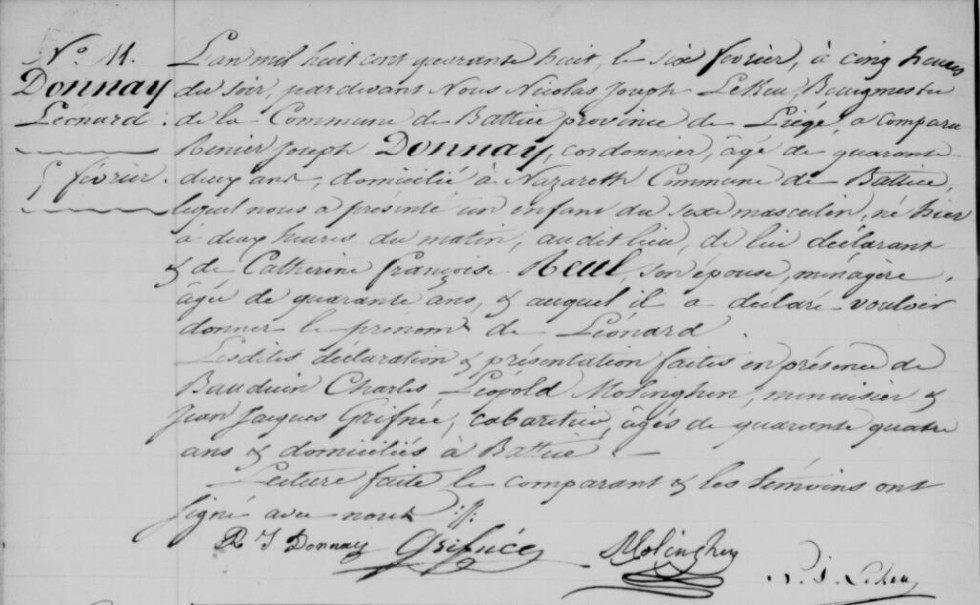 N° 11.
Donnay
Léonard.
5 février.
L'an mil huit cent quarante huit, le six février, à cinq heures
du soir, pardevant Nous Nicolas Joseph Lekeu, Bourgmestre
de la Commune de Battice province de Liége, a comparu
Renier Joseph Donnay, cordonnier, âgé de quarante
deux ans, domicilié à Nazareth Commune de Battice,
lequel nous a présenté un enfant du sexe masculin, né hier
à deux heures du matin, audit lieu, de lui déclarant
& de Catherine françoise Reul, son épouse, ménagère,
âgée de quarante ans, & auquel il a déclaré vouloir
donner le prénom de Léonard.
Lesdites déclaration & présentation faites en présence de
Bauduin Charles Léopold Molinghen, menuisier &
Jean Jacques Grifnée, cabaretier, âgés de quarante quatre
ans & domiciliés à Battice —
Lecture faite le comparant & les témoins ont
signé avec nous
R J Donnay Grifnée Molinghen N. J. Lekeu